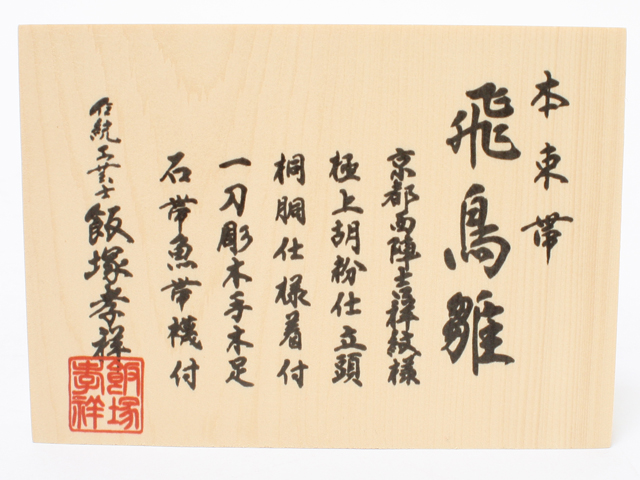 本束帯
飛鳥雛
京都西陣吉祥紋様
極上胡粉仕立頭
桐胴仕様着付
一刀彫木手木足
石帯魚帯機付
伝統工芸士飯塚孝祥
飯塚
孝祥